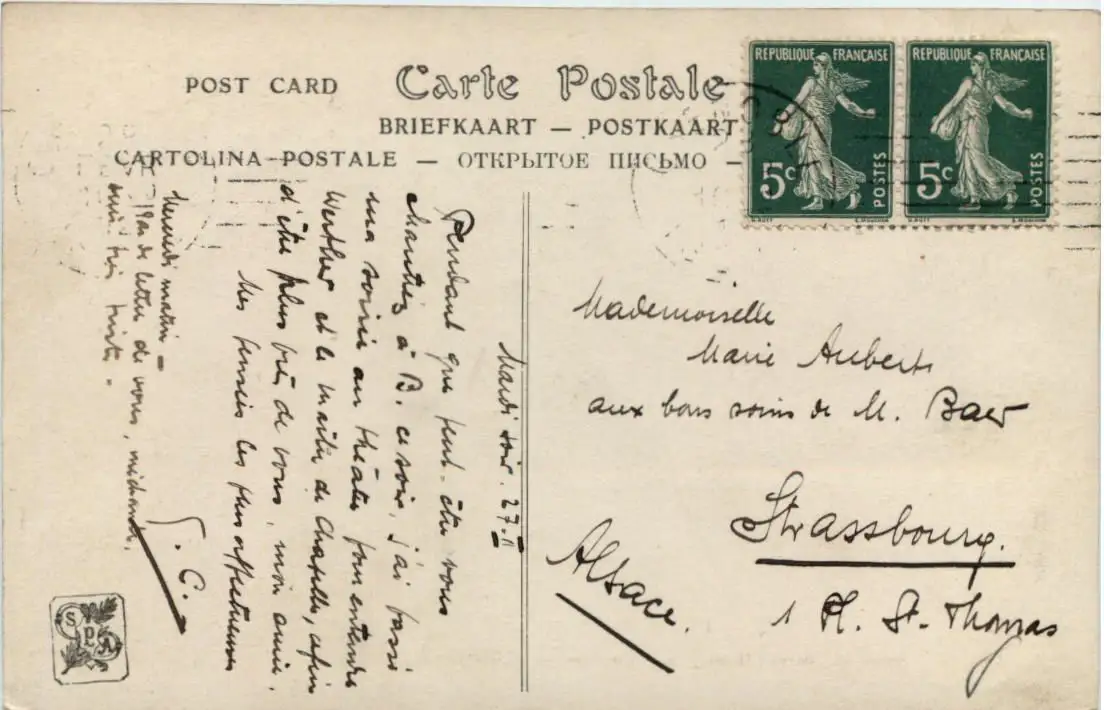 POST CARD Carte Postale
BRIEFKAART — POSTKAART
CARTOLINA-POSTALE — ОТКРЫТОЕ ПИСЬМО —
REPUBLIQUE FRANÇAISE
5c POSTES
REPUBLIQUE FRANÇAISE
5c POSTES
Mardi soir. 27.
Pendant que peut-être vous
chantiez à B. ce soir, j'ai passé
ma soirée au théâtre pour entendre
Werther et le maître de Chapelle, afin
d'être plus près de vous, mon amie.
Mes pensées les plus affectueuses
Mercredi matin —
Pas de lettre de vous, méchante,
suis très triste.
J. C.
Mademoiselle
Marie Auberts
aux bons soins de M. Baer
Strassbourg.
1 Pl. St. Thomas
Alsace.
S P A